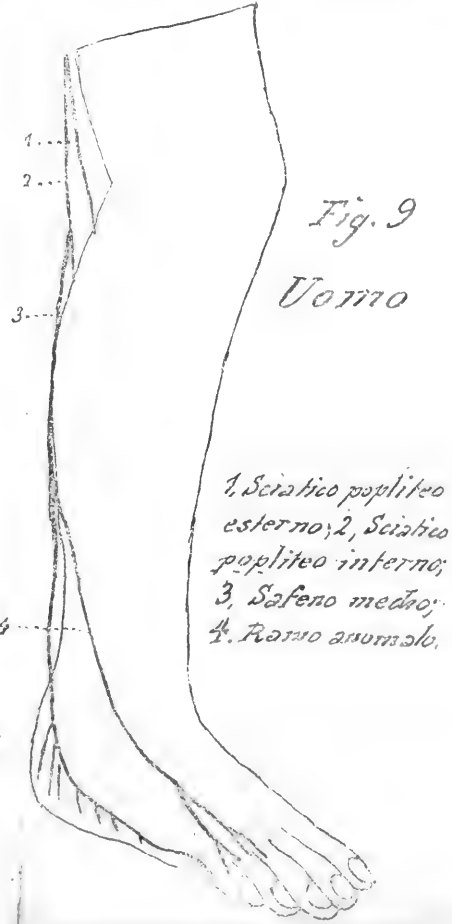 1
2
3
4
Fig. 9
Uomo
1, Sciatico popliteo
esterno; 2, Sciatico
popliteo interno;
3, Safeno medio;
4. Ramo anomalo.